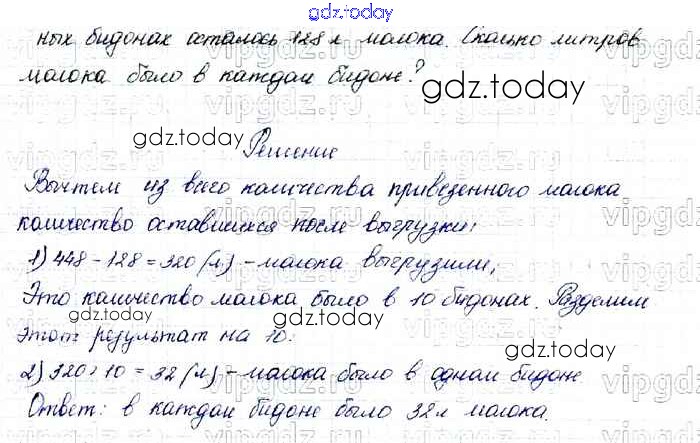 gdz.today
ных бидонах осталось 128 л молока. Сколько литров
молока было в каждом бидоне?
gdz.today
gdz.today
Решение
Вычтем из всего количества приведенного молока
количество оставшихся после выгрузки:
gdz.today
1) 448 - 128 = 320 (л) - молока выгрузили;
Это количество молока было в 10 бидонах. Разделим
этот результат на 10:
gdz.today
2) 320 : 10 = 32 (л) - молока было в одном бидоне
Ответ: в каждом бидоне было 32 л молока.